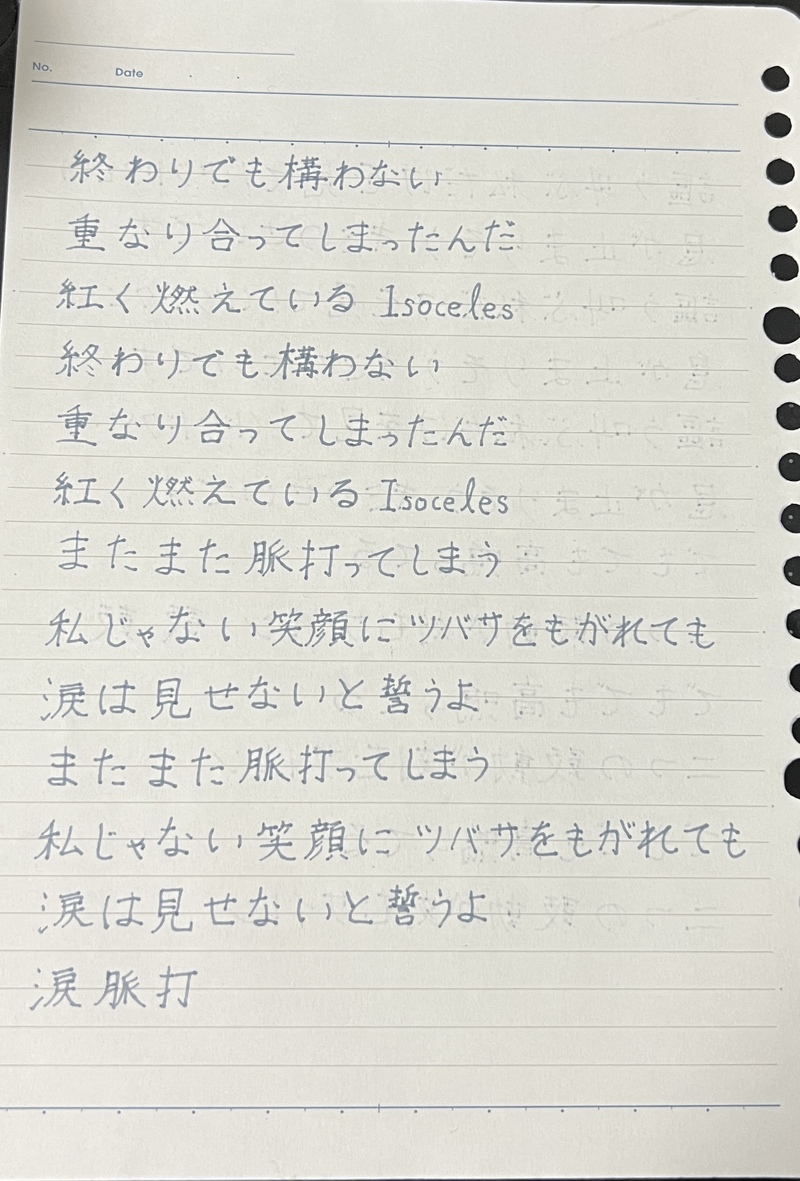 No. Date
終わりでも構わない
重なり合ってしまったんだ
紅く燃えている Isoceles
終わりでも構わない
重なり合ってしまったんだ
紅く燃えている Isoceles
またまた脈打ってしまう
私じゃない笑顔にツバサをもがれても
涙は見せないと誓うよ
またまた脈打ってしまう
私じゃない笑顔にツバサをもがれても
涙は見せないと誓うよ
涙脈打